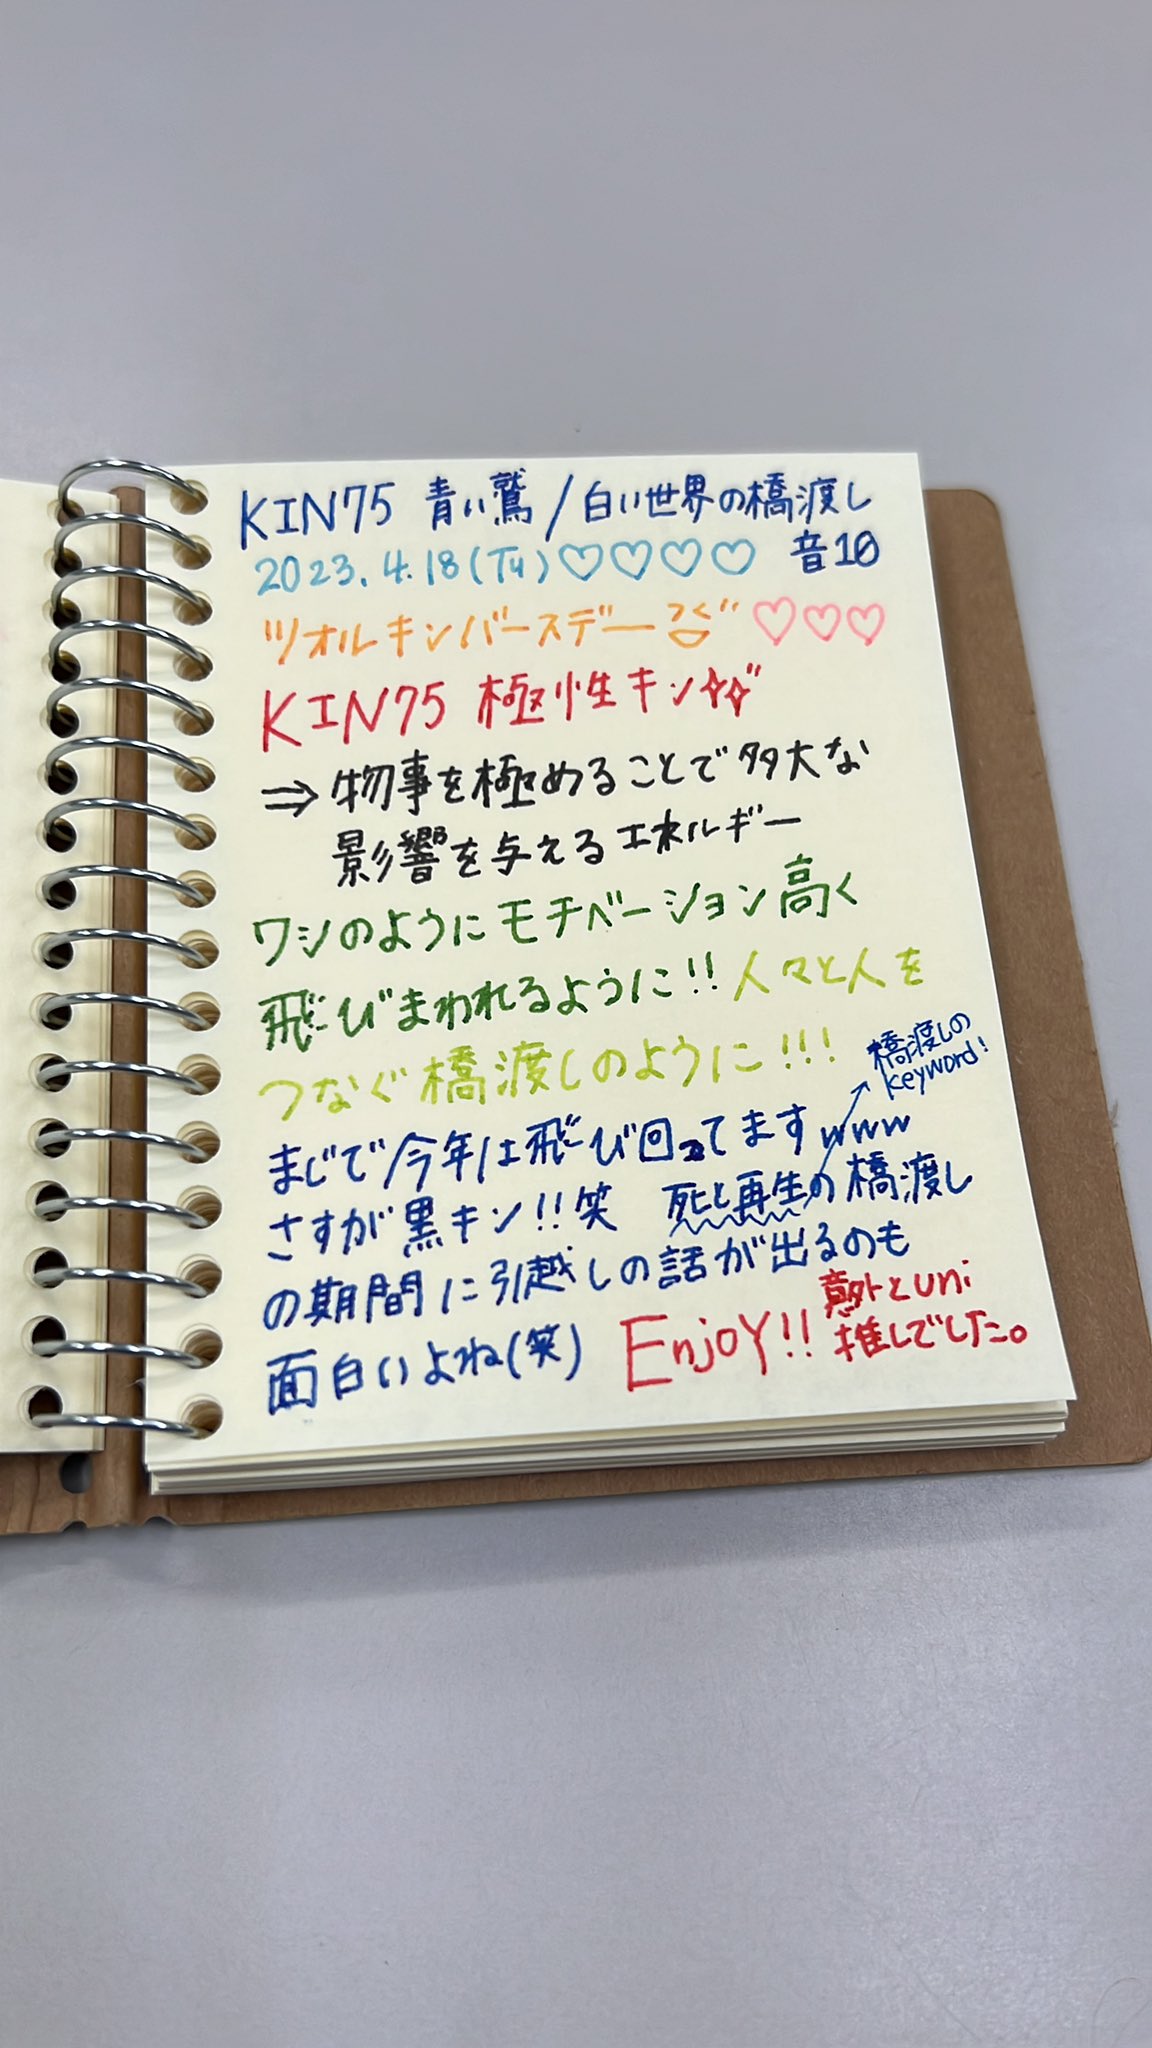 KIN75 青い鷲/白い世界の橋渡し
2023.4.18(Tu)♡♡♡♡ 音10
"ツォルキンバースデー" ♡♡♡
KIN75 極性キン✧✧"
⇒ 物事を極めることで多大な
影響を与えるエネルギー
ワシのようにモチベーション高く
飛びまわれるように!! 人々と人を
つなぐ橋渡しのように!!!
橋渡しの
keyword!
まじで今年は飛び回ってますwww
さすが黒キン!!笑 死と再生の橋渡し
の期間に引越しの話が出るのも
面白いよね(笑) Enjoy!! 意外とuni
推しでした。